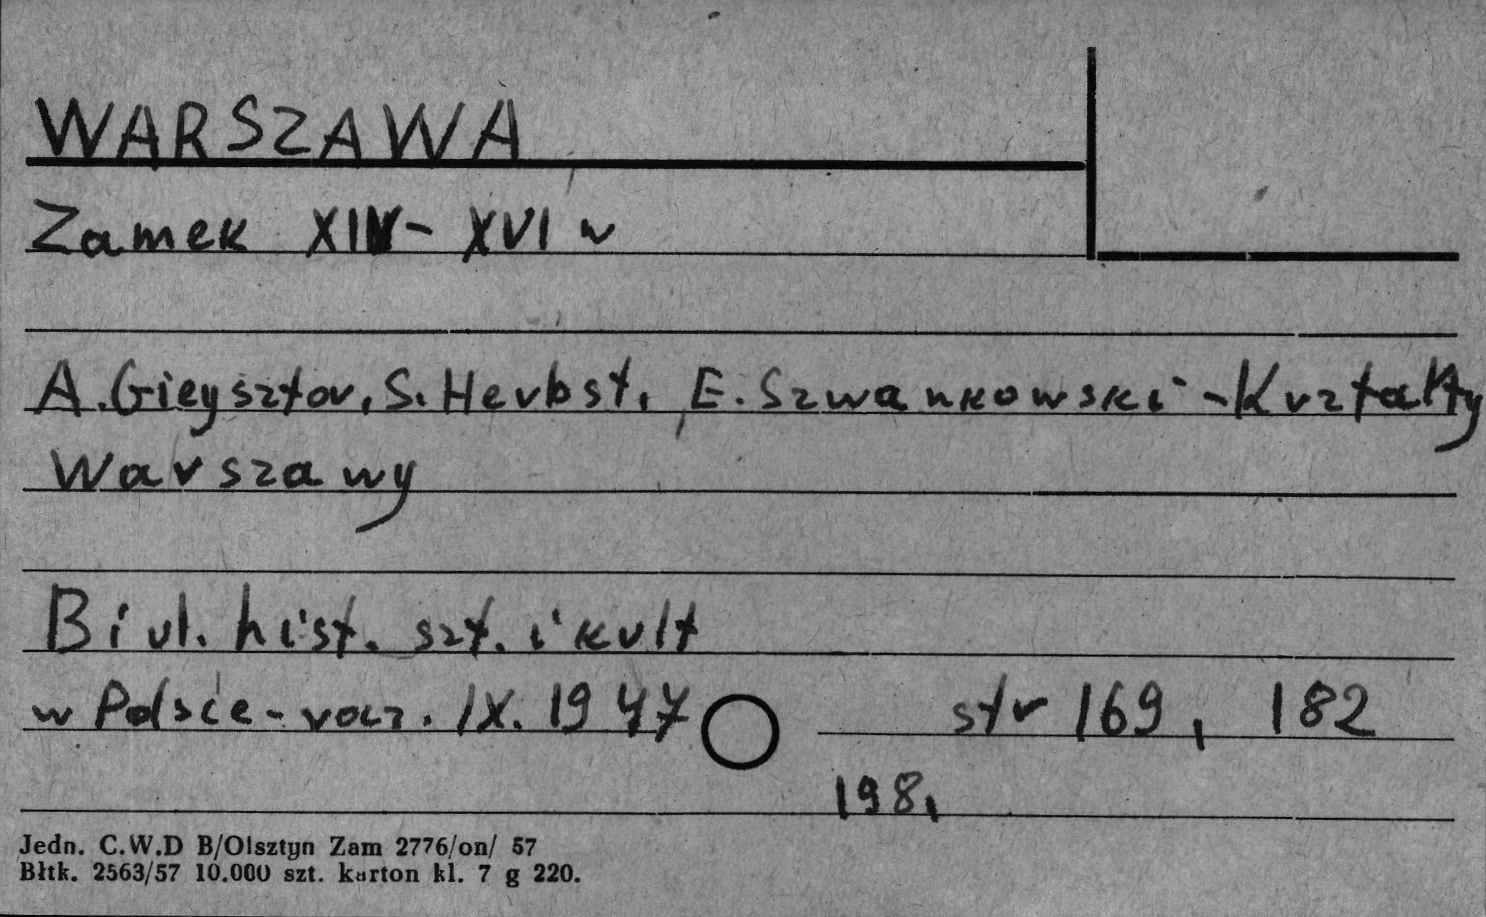 WARSZAWA
Zamek XIV - XVI w
A. Gieysztor, S. Herbst, E. Szwankowski - Kształty
Warszawy
Biul. hist. szt. i kult
w Polsce - rocz. IX. 1947 str 169, 182
198,
Jedn. C.W.D B/Olsztyn Zam 2776/on/ 57
Błtk. 2563/57 10.000 szt. karton kl. 7 g 220.